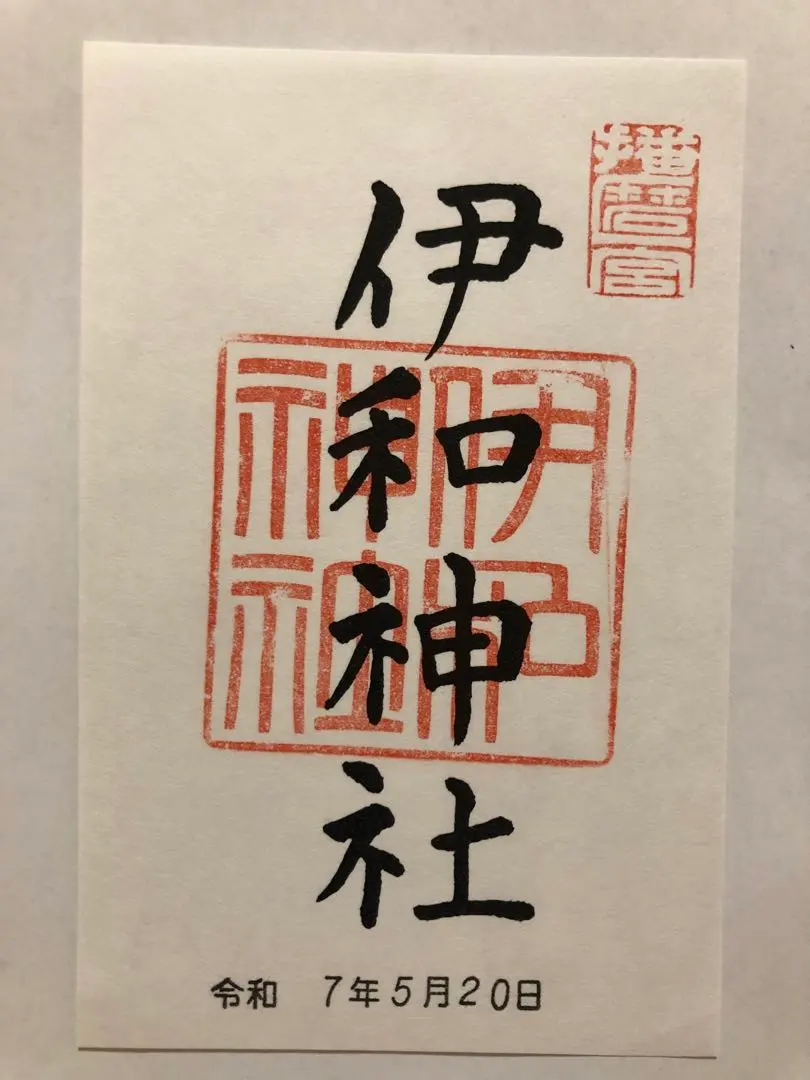 播磨宮
伊和神社
伊和神社
令和 7年5月20日